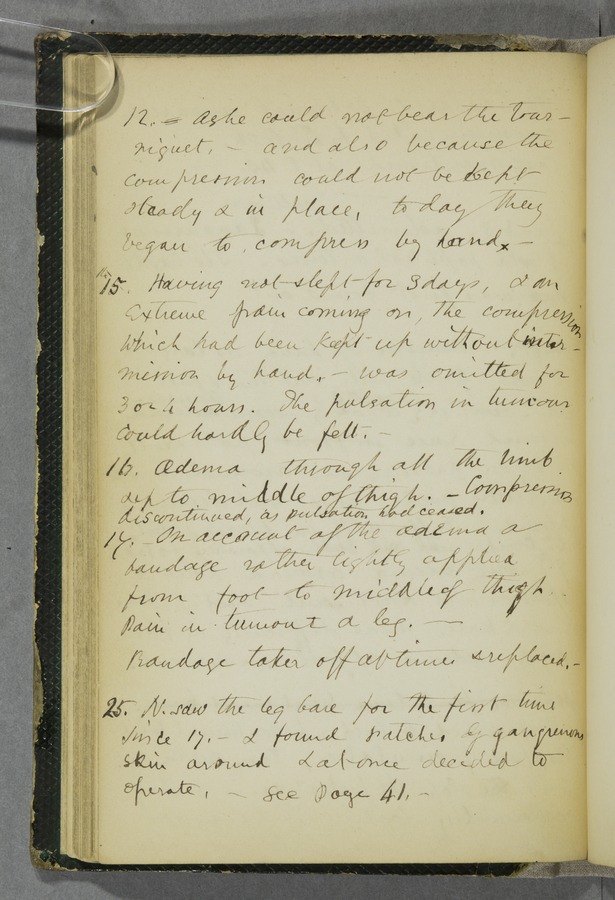 12. = As he could not bear the tour-
niquet. - and also because the
compression could not be kept
steady & in place, today they
began to compress by hand. -
15. Having not slept for 3 days, & an
extreme pain coming on, the compression
which had been kept up without inter-
mission by hand. - was omitted for
3 or 4 hours. The pulsation in tumour
could hardly be felt. -
16. Œdema through all the limb
up to middle of thigh. - Compression
discontinued, as pulsation had ceased.
17. - On account of the œdema a
bandage rather tightly applied
from foot to middle of thigh.
Pain in tumour & leg. -
Bandage taken off at times & replaced. -
25. N. saw the leg bare for the first time
since 17. - & found patches of gangrenous
skin around & at once decided to
operate. - See Page 41. -